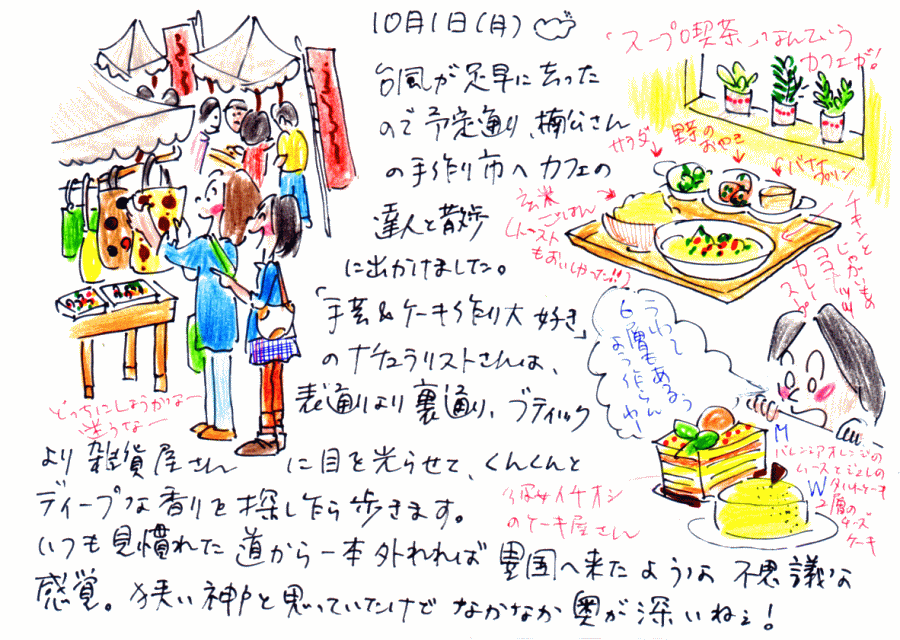 10月1日(月)
台風が足早に去った
ので予定通り、楠公さん
の手作り市へカフェの
達人と散歩
に出かけました。
「手芸&ケーキ作り大好き」
のナチュラリストさんは、
表通りより裏通り、ブティック
より雑貨屋さん に目を光らせて、くんくんと
ディープな香りを探しながら歩きます。
いつも見慣れた道から一本外れれば異国へ来たような不思議な
感覚。狭い神戸と思っていたけどなかなか奥が深いねぇ!
どっちにしようかなー
迷うなー
「スープ喫茶」なんていう
カフェが!
サラダ
野菜の
おやき
バナナ
プリン
玄米
ごはん
(トースト
もおいしかった!!)
チキンと
じゃがいも
ココナッツ
カレースープ
うわって
6層もあるぅ
よう作らんわー
M
バレンシアオレンジの
ムースとジュレの
タルトケーキ
W
2層の
チーズ
ケーキ
イチオシ
のケーキ屋さん